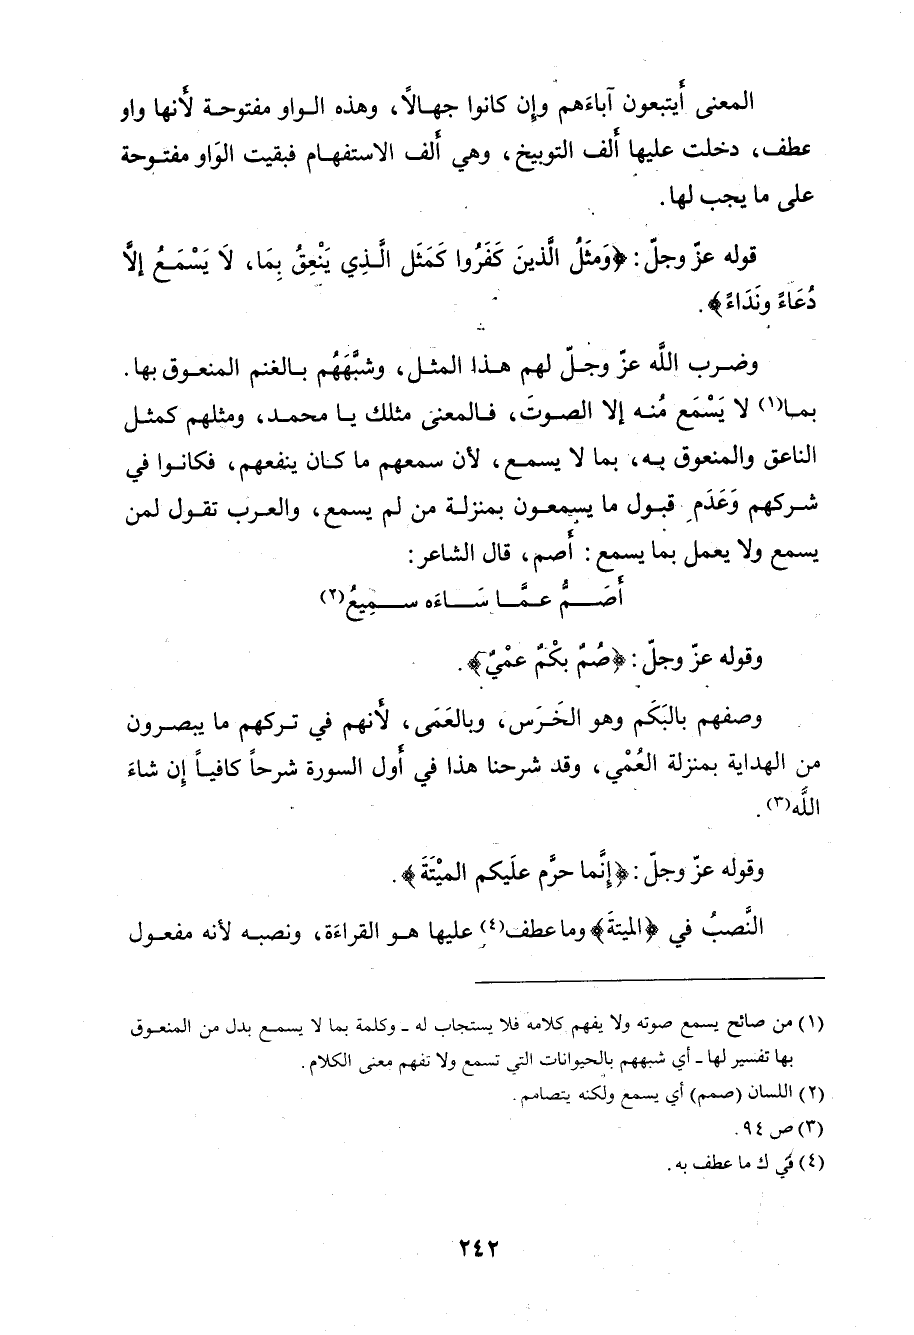 المعنى أَيتبعون آباءَهم وإن كانوا جهالاً، وهذه الواو مفتوحة لأنها واو
عطف، دخلت عليها أَلف التوبيخ، وهي أَلف الاستفهام فبقيت الوَاو مفتوحة
على ما يجب لها.
قوله عزّ وجلّ: ﴿وَمثَلُ الَّذينَ كَفَرُوا كَمَثَل الَّذِي يَنْعِقُ بِمَا، لَا يَسْمَعُ إلاَّ
دُعَاءً ونَدَاءً﴾.
وضرب اللَّه عزّ وجلّ لهم هذا المثل، وشبَّهَهُم بالغنم المنعوق بها.
بما(١) لا يَسْمَع مُنه إلا الصوتَ، فالمعنى مثلك يا محمد، ومثلهم كمثل
الناعق والمنعوق به، بما لا يسمع، لأن سمعهم ما كان ينفعهم، فكانوا في
شركهم وَعَدَمِ قبول ما يسمعون بمنزلة من لم يسمع، والعرب تقول لمن
يسمع ولا يعمل بما يسمع: أَصم، قال الشاعر:
أَصَمُّ عمَّا سَاءَه سمِيعُ(٢)
وقوله عزّ وجلّ: ﴿صُمٌ بكْمٌ عمْيٌ﴾.
وصفهم بالبَكَم وهو الخَرَس، وبالعَمَى، لأَنهم في تركهم ما يبصرون
من الهداية بمنزلة العُمْي، وقد شرحنا هذا في أَول السورة شرحاً كافياً إِن شاءَ
اللَّه(٣).
وقوله عزّ وجلّ: ﴿إِنَّما حرَّم علَيكم الميْتَةَ﴾.
النَّصبُ في ﴿الميتةَ﴾ وما عطف(٤) عليها هو القراءَة، ونصبه لأنه مفعول
(١) من صائح يسمع صوته ولا يفهم كلامه فلا يستجاب له ـ وكلمة بما لا يسمع بدل من المنعوق
بها تفسير لها ـ أي شبههم بالحيوانات التي تسمع ولا تفهم معنى الكلام.
(٢) اللسان (صمم) أي يسمع ولكنه يتصامم.
(٣) ص ٩٤.
(٤) في ك ما عطف به.
٢٤٢